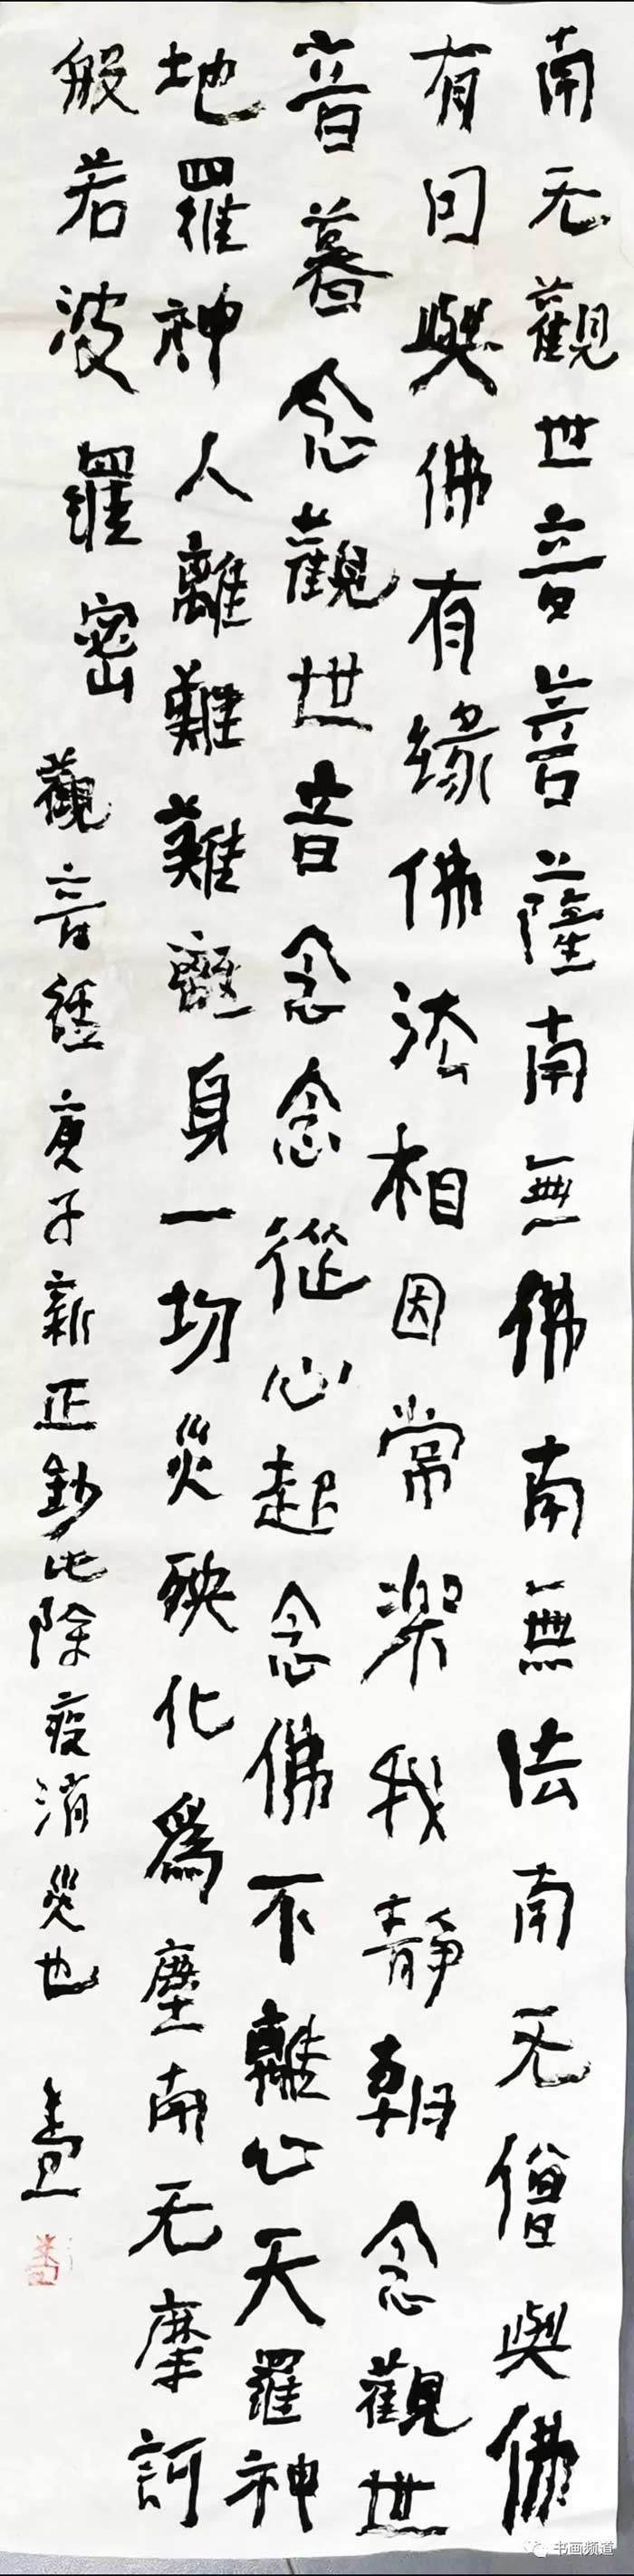 南无觀世音菩薩南無佛南無法南无僧與佛
有因與佛有緣佛法相因常樂我靜朝念觀世
音暮念觀世音念念從心起念佛不離心天羅神
地羅神人離難難離身一切災殃化爲塵南无摩訶
般若波羅密 觀音經庚子新正鈔此除疫消災也
书画频道